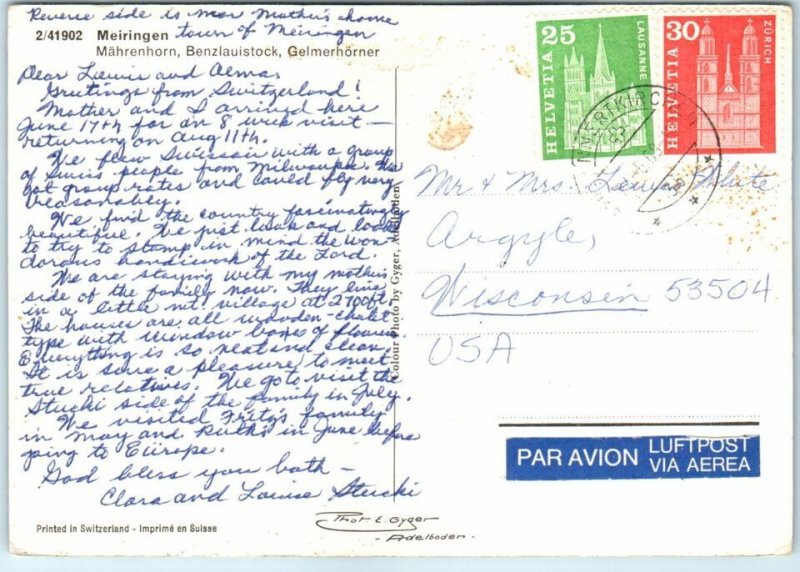 Reverse side is near Mother's home
town of Meiringen
2/41902 Meiringen
Mährenhorn, Benzlauistock, Gelmerhörner
Dear Lewis and Alma,
Greetings from Switzerland!
Mother and I arrived here
June 17th for an 8 week visit—
returning on Aug 11th.
We flew Swissair with a group
of Swiss people from Milwaukee. We
got group rates and could fly very
reasonably.
We find the country fascinatingly
beautiful. We just look and look
to try to stamp in mind the won-
dorous handiwork of the Lord.
We are staying with my mother's
side of the family now. They live
in a little mt. village at 2700 ft.
The houses are all wooden-chalet
type with window boxes of flowers.
Everything is so neat and clean.
It is sure a pleasure to meet
true relatives. We go to visit the
Stucki side of the family in July.
We visited Fritz's family
in May and Ruth's in June before
going to Europe.
God bless you both—
Clara and Louise Stucki
Printed in Switzerland - Imprimé en Suisse
Colour Photo by Gyger, Adelboden
Phot. E. Gyger
- Adelboden -
25 HELVETIA LAUSANNE
30 HELVETIA ZÜRICH
INNERTKIRCHEN
Mr & Mrs. Lewis
Argyle,
Wisconsin 53504
USA
PAR AVION LUFTPOST
VIA AEREA